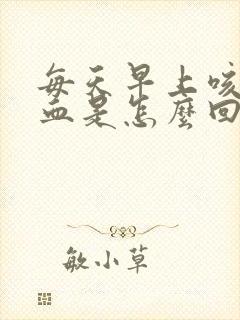 每天早上咳
血是怎麼回
敏小草